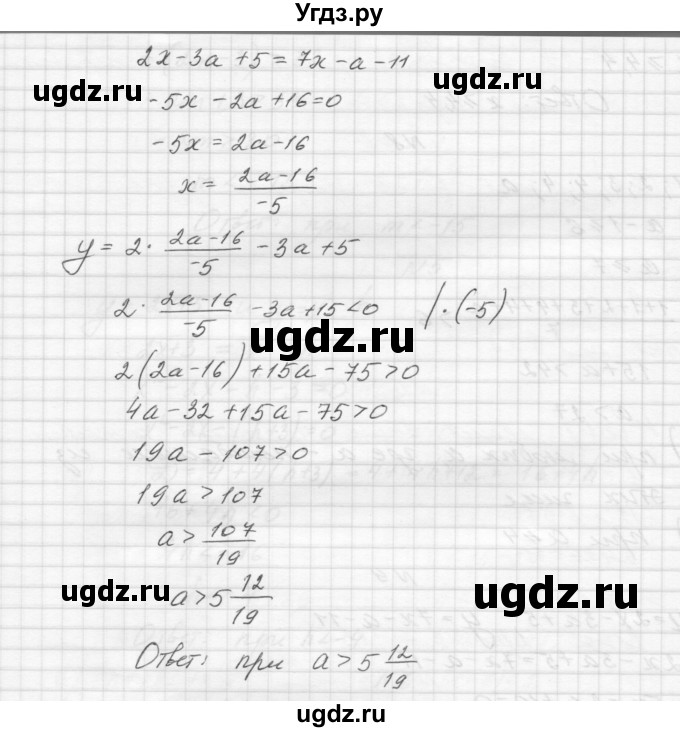 Угдз.ру
2x-3a+5=7x-a-11
-5x-2a+16=0
-5x=2a-16
x= (2a-16)/(-5)
y=2·(2a-16)/(-5)-3a+5
2·(2a-16)/(-5)-3a+15<0 |·(-5)
2(2a-16)+15a-75>0
4a-32+15a-75>0
19a-107>0
19a>107
a>107/19
a>5 12/19
Ответ: при a>5 12/19
ugdz.ru
ugdz.ru
ugdz.ru
ugdz.ru
ugdz.ru
ugdz.ru
ugdz.ru